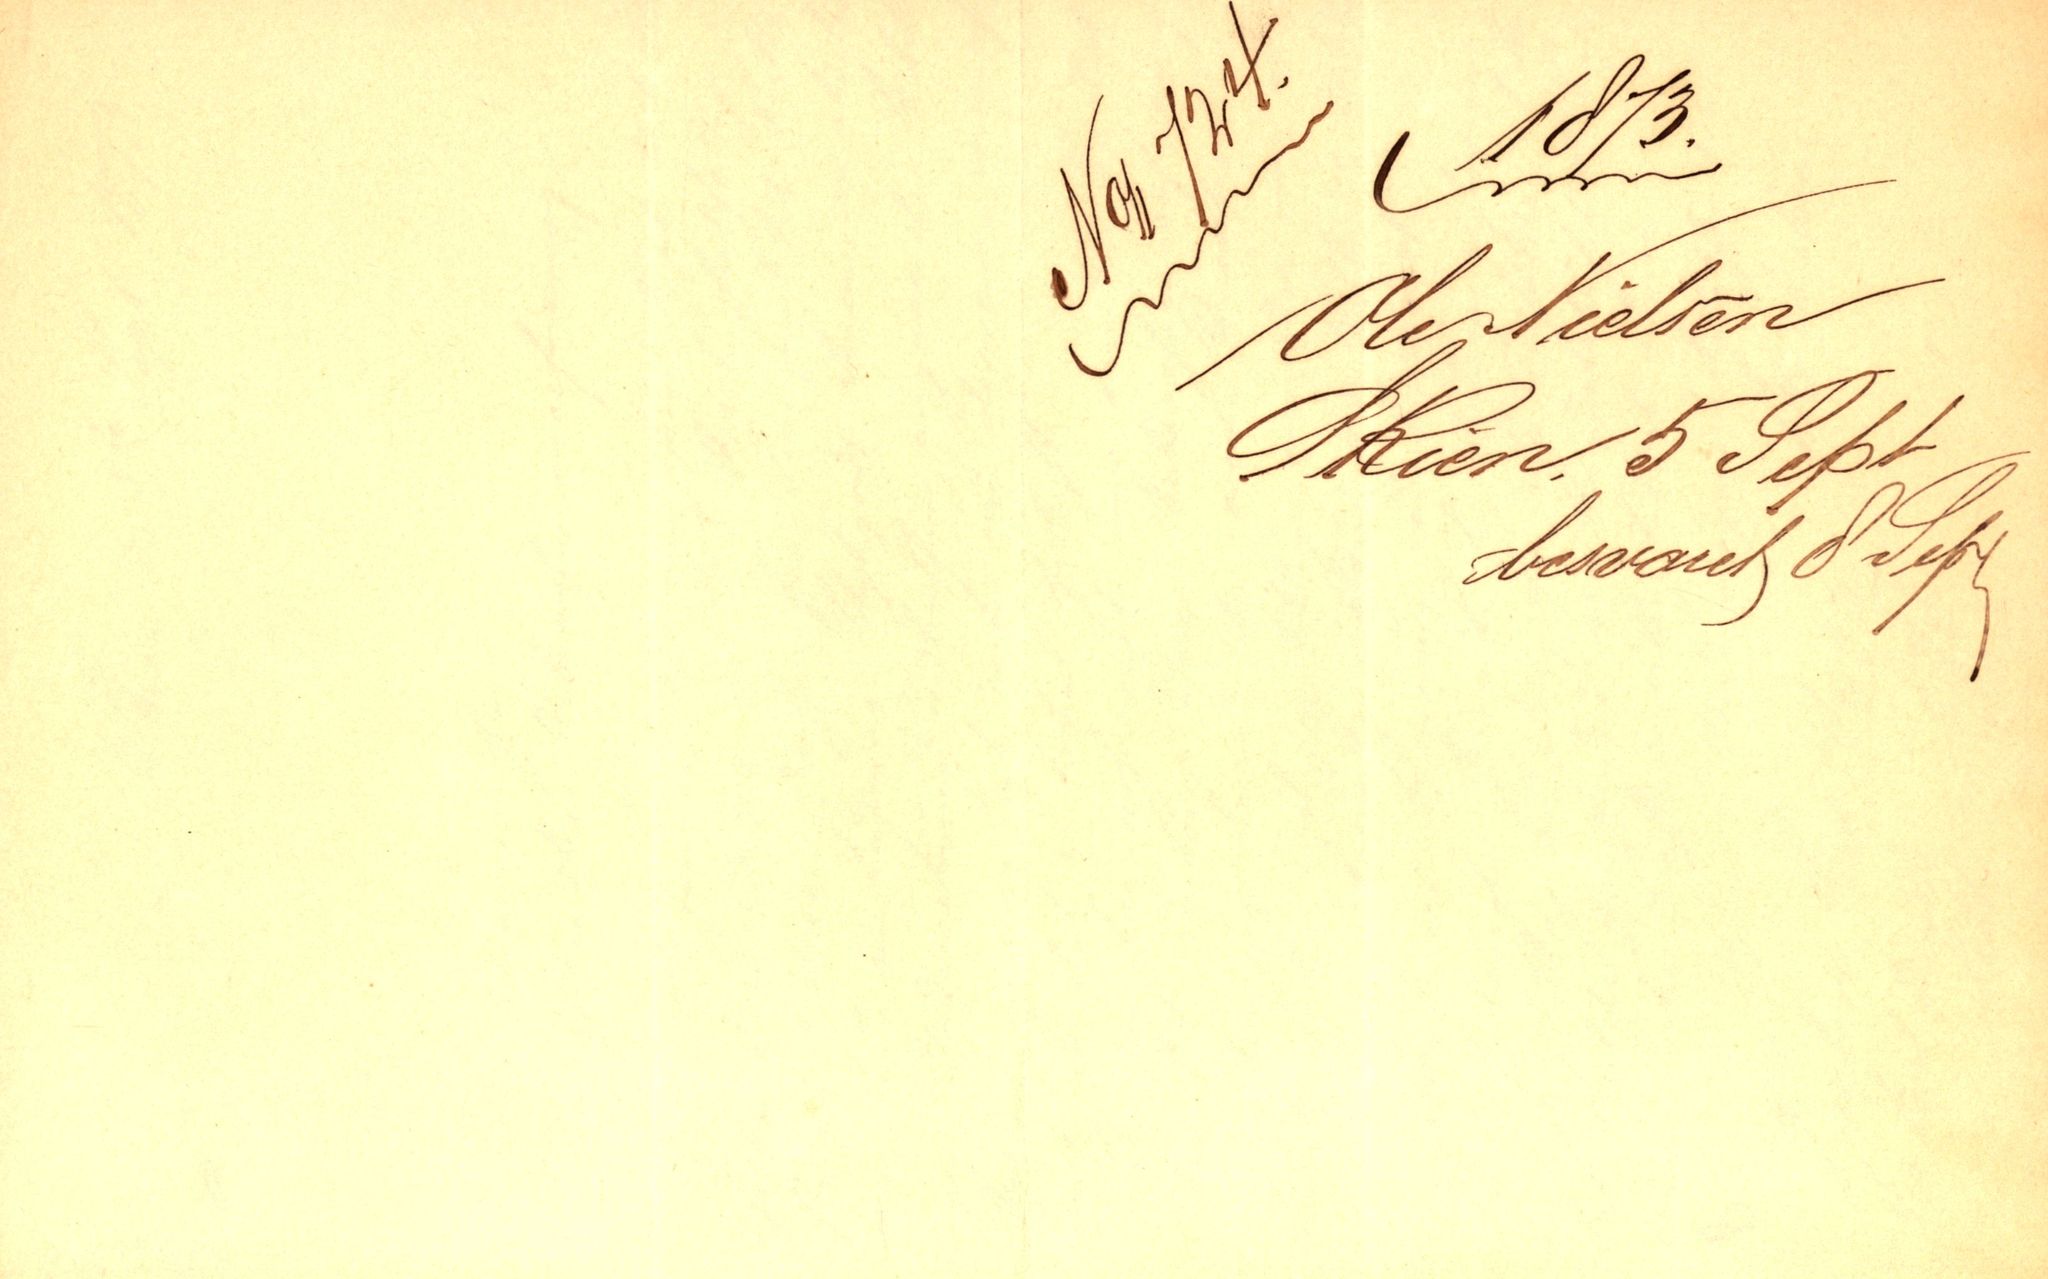 No 724.
1873.
Ole Nielsen
Skien. 5 Sept
besvaret 8 Sept